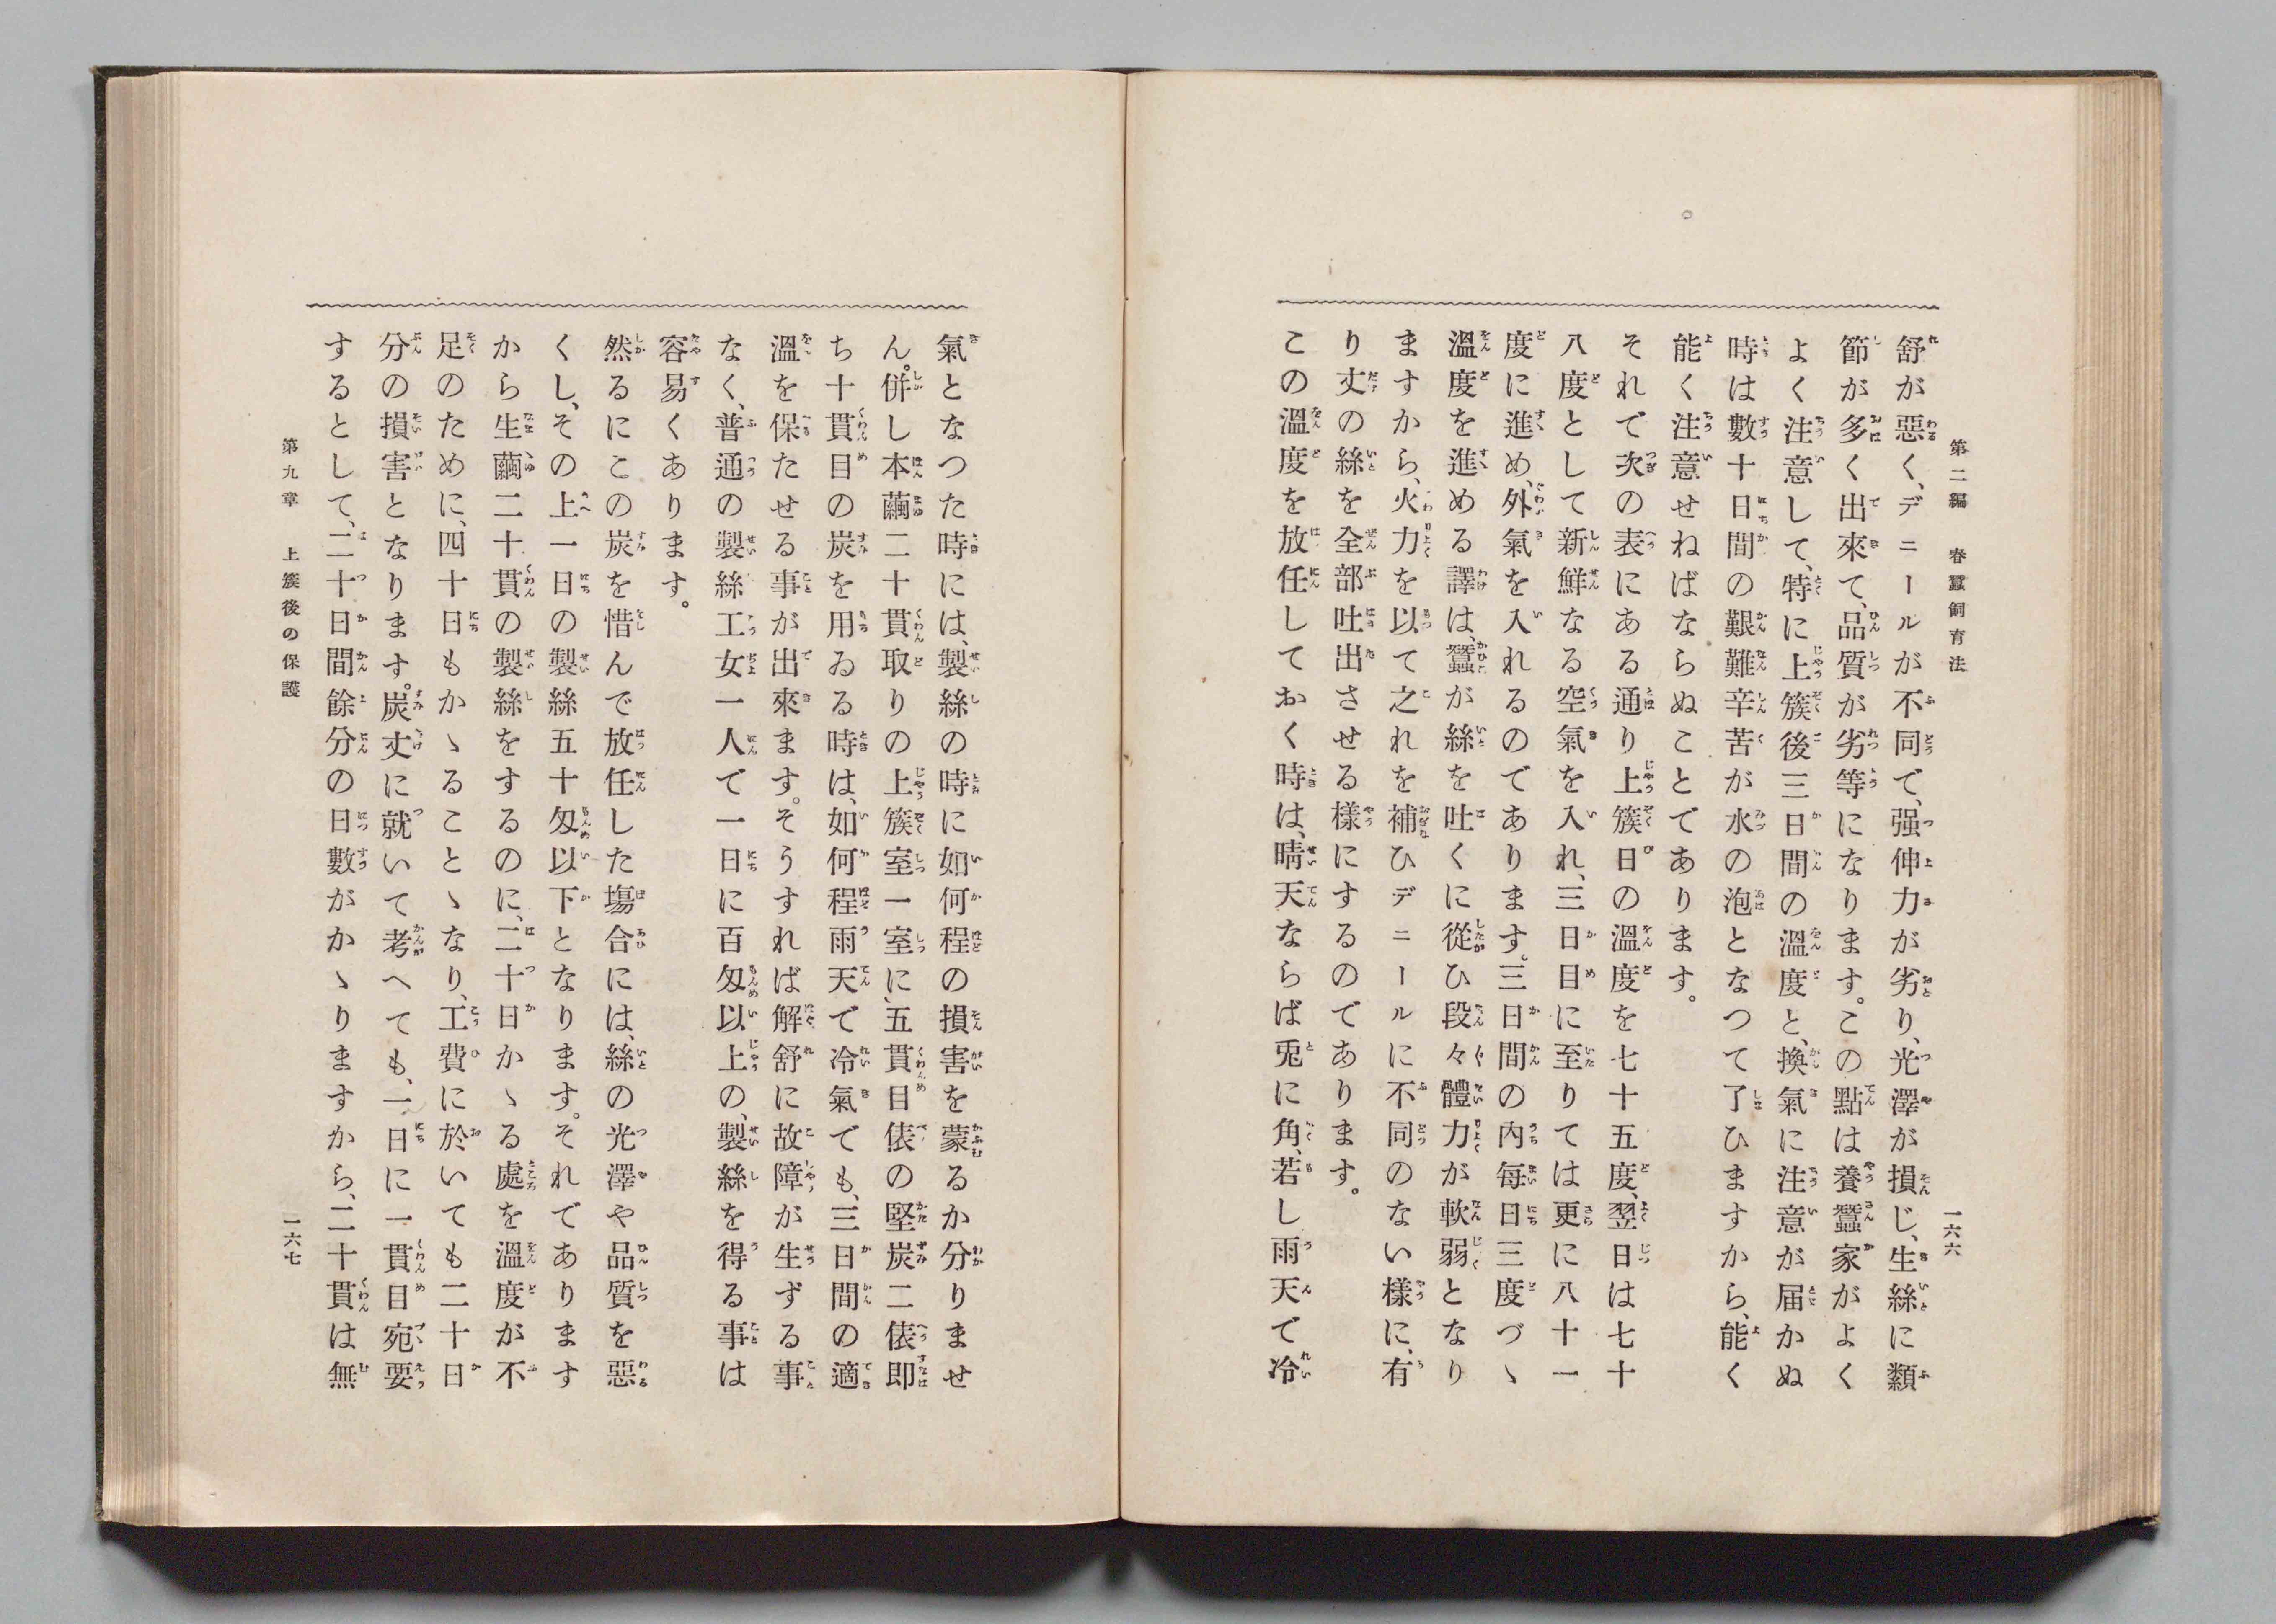 第二編　春蠶飼育法
一六六
舒が惡く、デニールが不同で、强伸力が劣り、光澤が損じ、生絲に類
節が多く出來て、品質が劣等になります。この點は養蠶家がよく
よく注意して、特に上簇後三日間の溫度と、換氣に注意が届かぬ
時は數十日間の艱難辛苦が水の泡となつて了ひますから、能く
能く注意せねばならぬことであります。
それで次の表にある通り上簇日の溫度を七十五度、翌日は七十
八度として新鮮なる空氣を入れ、三日目に至りては更に八十一
度に進め、外氣を入れるのであります。三日間の內每日三度づゝ
溫度を進める譯は、蠶が絲を吐くに從ひ段々體力が軟弱となり
ますから、火力を以て之れを補ひデニールに不同のない樣に、有
り丈の絲を全部吐出させる樣にするのであります。
この溫度を放任しておく時は、晴天ならば兎に角、若し雨天で冷
氣となつた時には、製絲の時に如何程の損害を蒙るか分りませ
ん。併し本繭二十貫取りの上簇室一室に、五貫目俵の堅炭二俵卽
ち十貫目の炭を用ゐる時は、如何程雨天で冷氣でも、三日間の適
溫を保たせる事が出來ます。そうすれば解舒に故障が生ずる事
なく、普通の製絲工女一人で一日に百匁以上の、製絲を得る事は
容易くあります。
然るにこの炭を惜んで放任した塲合には、絲の光澤や品質を惡
くし、その上一日の製絲五十匁以下となります。それであります
から生繭二十貫の製絲をするのに、二十日かゝる處を溫度が不
足のために、四十日もかゝることゝなり、工費に於いても二十日
分の損害となります。炭丈に就いて考へても、一日に一貫目宛要
するとして、二十日間餘分の日數がかゝりますから、二十貫は無
第九章　上簇後の保護
一六七